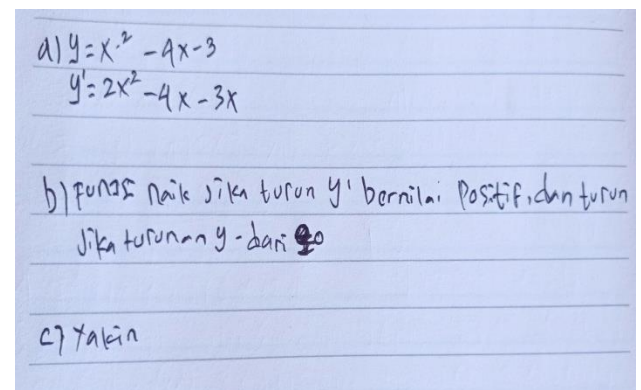 a) y = x² - 4x - 3
y' = 2x² - 4x - 3x
b) Fungsi naik jika turun y' bernilai Positif, dan turun
jika turunan y - dari 0
c) Yakin